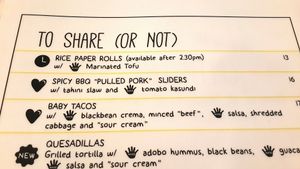 TO SHARE (OR NOT)
RICE PAPER ROLLS (available after 2:30pm) 13
w/ Marinated Tofu
SPICY BBQ "PULLED PORK" SLIDERS 16
w/ tahini slaw and tomato kasundi
BABY TACOS 17
w/ blackbean crema, minced "beef", salsa, shredded
cabbage and "sour cream"
NEW QUESADILLAS
Grilled tortilla w/ adobo hummus, black beans, guac
salsa and "sour cream"